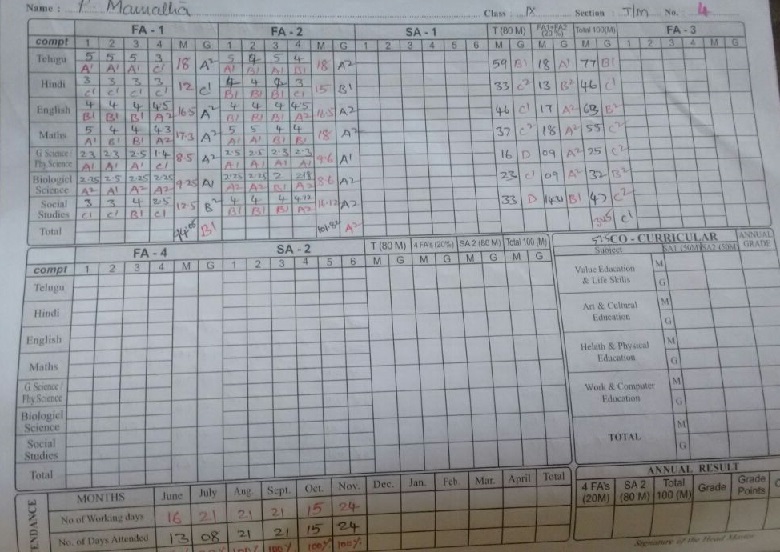 Name : P. Mounatha Class : IX Section : T/m No. : 4
FA - 1 FA - 2 SA - 1 T (80 M) Total 100(M) FA - 3
compt 1 2 3 4 M G 1 2 3 4 M G 1 2 3 4 5 6 M G M G M G 1 2 3 4 M G
Telugu 5 5 5 3 18 A² 5 4 5 4 18 A² 59 B1 18 A1 77 B1
A1 A1 A1 C1 A1 B1 A1 B1
Hindi 3 3 3 3 12 C1 4 4 3 15 B1 33 C² 13 B² 46 C1
C1 C1 C1 C1 B1 B1 C1
English 4 4 4 4.5 16.5 A² 4 4 4 4.5 16.5 A² 46 C1 17 A² 63 B²
B1 B1 B1 A2 B1 B1 B1 A2
Maths 5 4 4 4.3 17.3 A² 5 5 4 4 18 A² 37 C² 18 A² 55 C²
A1 B1 B1 A2 A1 A1 B1 B1
G Science / Phy Science 2.3 2.3 2.5 1.4 8.5 A² 2.5 2.5 2.3 2.3 9.6 A1 16 D 09 A² 25 C²
A1 A1 A1 C1 A1 A1 A1 A1
Biological Science 2.25 2.5 2.25 2.25 9.25 A1 2.25 2.25 2 8.6 A2 23 C1 09 A² 32 B²
A2 A1 A2 A2 A2 A2 B1 A2
Social Studies 3 3 4 2.5 12.5 B² 4 4 4 A2 33 D B1 47 C²
C1 C1 B1 C1 B1 B1 B1 A2
Total B1 A2 C1
FA - 4 SA - 2 T (80 M) 4 FA's (20%) SA 2 (80 M) Total 100 (M) CO - CURRICULAR ANNUAL GRADE
compt 1 2 3 4 M G 2 3 4 5 6 M G M G M G M G Subject
Telugu
Value Education & Life Skills M G
Hindi
Art & Cultural Education M G
English
Maths
Heleth & Physical Education M G
G Science / Phy Science
Work & Computer Education M G
Biologicl Science
Social Studies
TOTAL M G
Total
ANNUAL RESULT
MONTHS June July Aug. Sept. Oct. Nov. Dec. Jan. Feb. Mar. April Total
4 FA's (20M) SA 2 (80 M) Total 100 (M) Grade Grade Points
No of Working days 16 21 21 21 15 24
No. of Days Attended 13 08 21 21 15 24
100% 100% 100% 100%
Signature of the Head Master